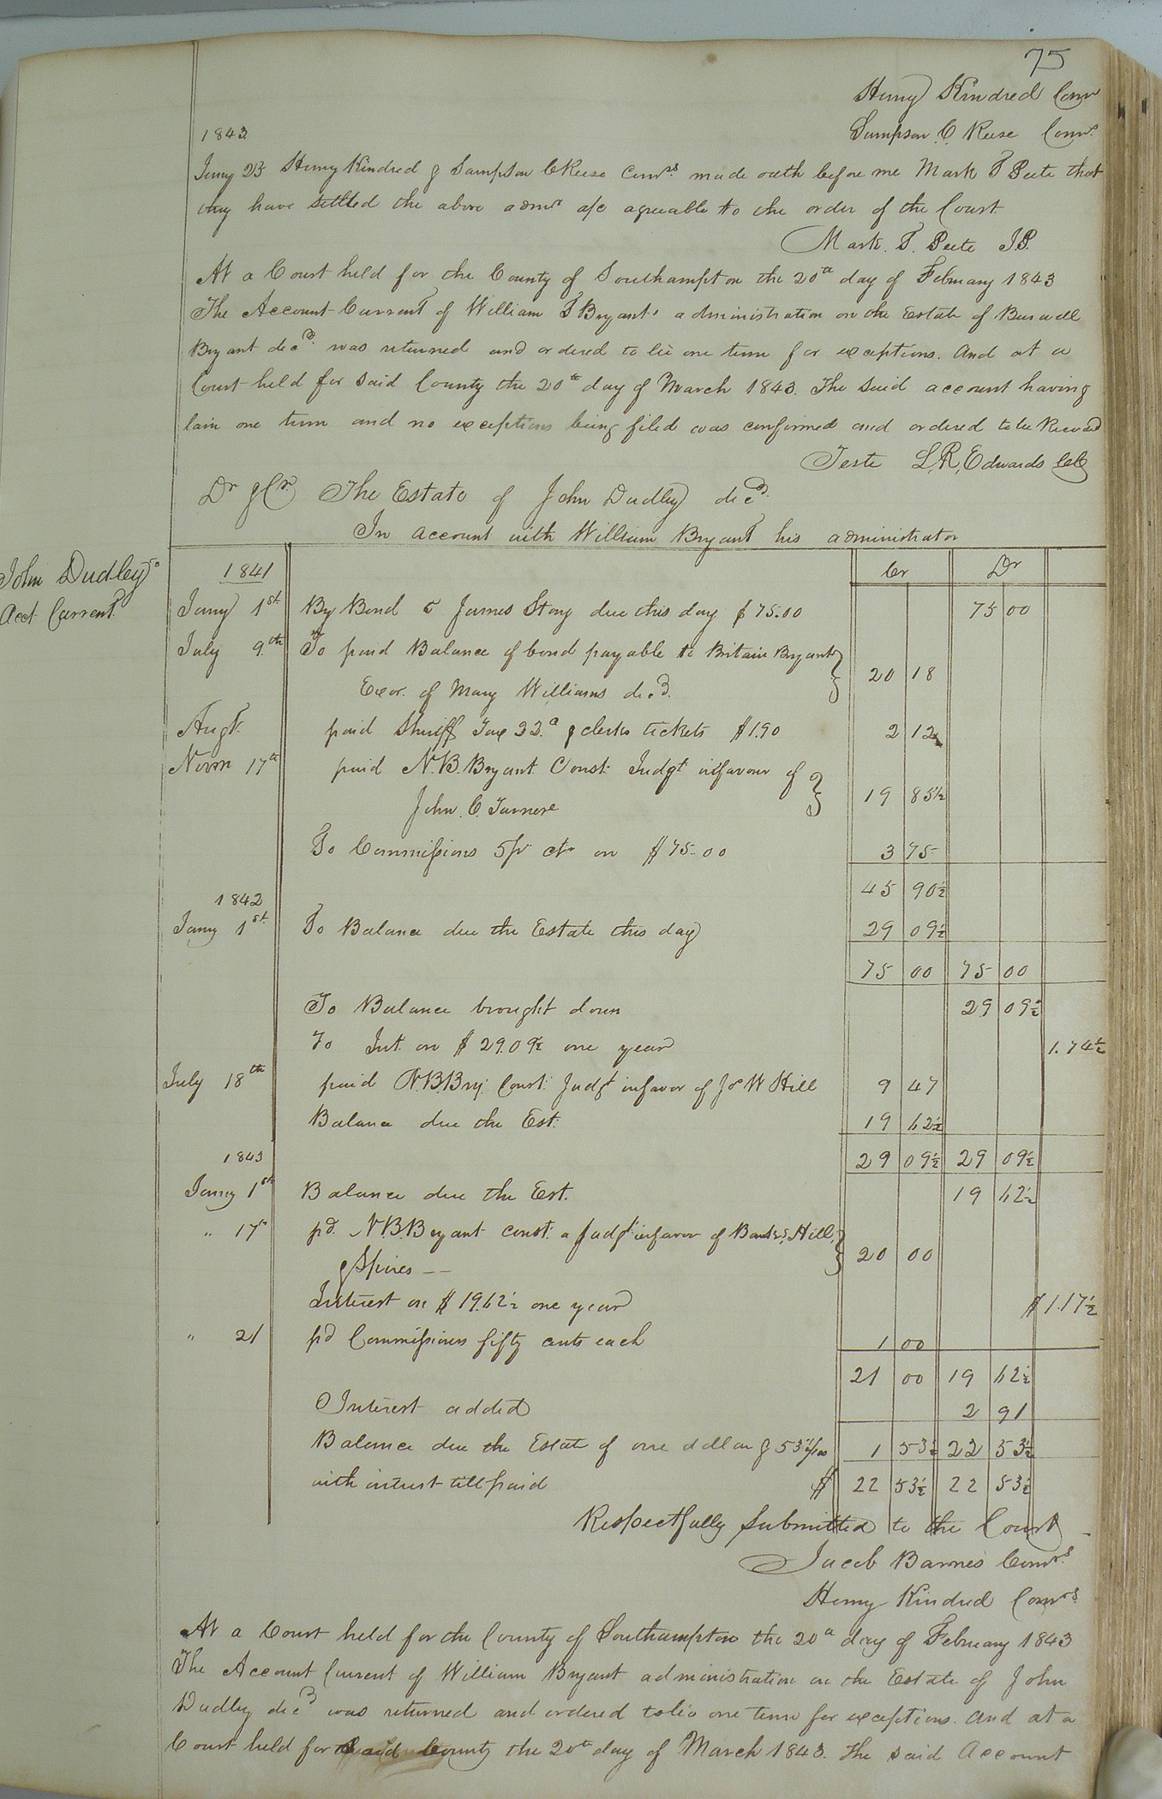 75
Henry Kindred Comr
Sampson C. Reese Comr.
1843
Jany 23 Henry Kindred & Sampson C Reese Comrs. made oath before me Mark T Peete that
they have settled the above admr a/c agreeable to the order of the Court.
Mark. T. Peete J.P.
At a Court held for the County of Southampton the 20th day of February 1843
The Account Current of William T Bryant's administration on the Estate of Burwell
Bryant decd. was returned and ordered to lie one term for exceptions. And at a
Court held for said County the 20th day of March 1843. The said account having
lain one term and no exceptions being filed was confirmed and ordered to be Record
Teste L. R. Edwards
Dr & Cr. The Estate of John Dudley decd.
In account with William Bryant his administrator
John Dudley's
Acct. Current.
1841 Cr Dr
Jany 1st By Bond James Story due this day $75.00 75 00
July 9th To paid Balance of bond payable to Britain Bryant
Exor. of Mary Williams decd. 20 18
Augt. paid Sheriff Tax 22.a & clerks tickets $1.90 2 12
Novm 17th paid N. B. Bryant Const. Judgt infavour of
John. C. Turner 19 85½
To Commissions 5 pr ct. on $75.00 3 75
45 90½
1842
Jany 1st To Balance due the Estate this day 29 09½
75 00 75 00
To Balance brought down 29 09½
To Int. on $29.09½ one year 1.74½
July 18th paid N.B. Bry. Const. Judgt infavor of J & W Hill 9 47
Balance due the Est. 19 62½
1843 29 09½ 29 09½
Jany 1st Balance due the Est. 19 62½
" 17th pd. N.B. Bryant const. a Judgt infavor of Hill,
& Spires -- 20 00
Interest on $19.62½ one year $1.17½
" 21 pd Commissions fifty cents each 1 00
21 00 19 62½
Interest added 2 91
Balance due the Estate of one dollar & 53½/100 1 53½ 22 53½
with interest till paid $ 22 53½ 22 53½
Respectfully Submitted to the Court
Jacob Barnes Comrs.
Henry Kindred Comrs.
At a Court held for the County of Southampton the 20th day of February 1843
The Account Current of William Bryant administration on the Estate of John
Dudley decd was returned and ordered to lie one term for exceptions. And at a
Court held for said County the 20th day of March 1843. The said Account